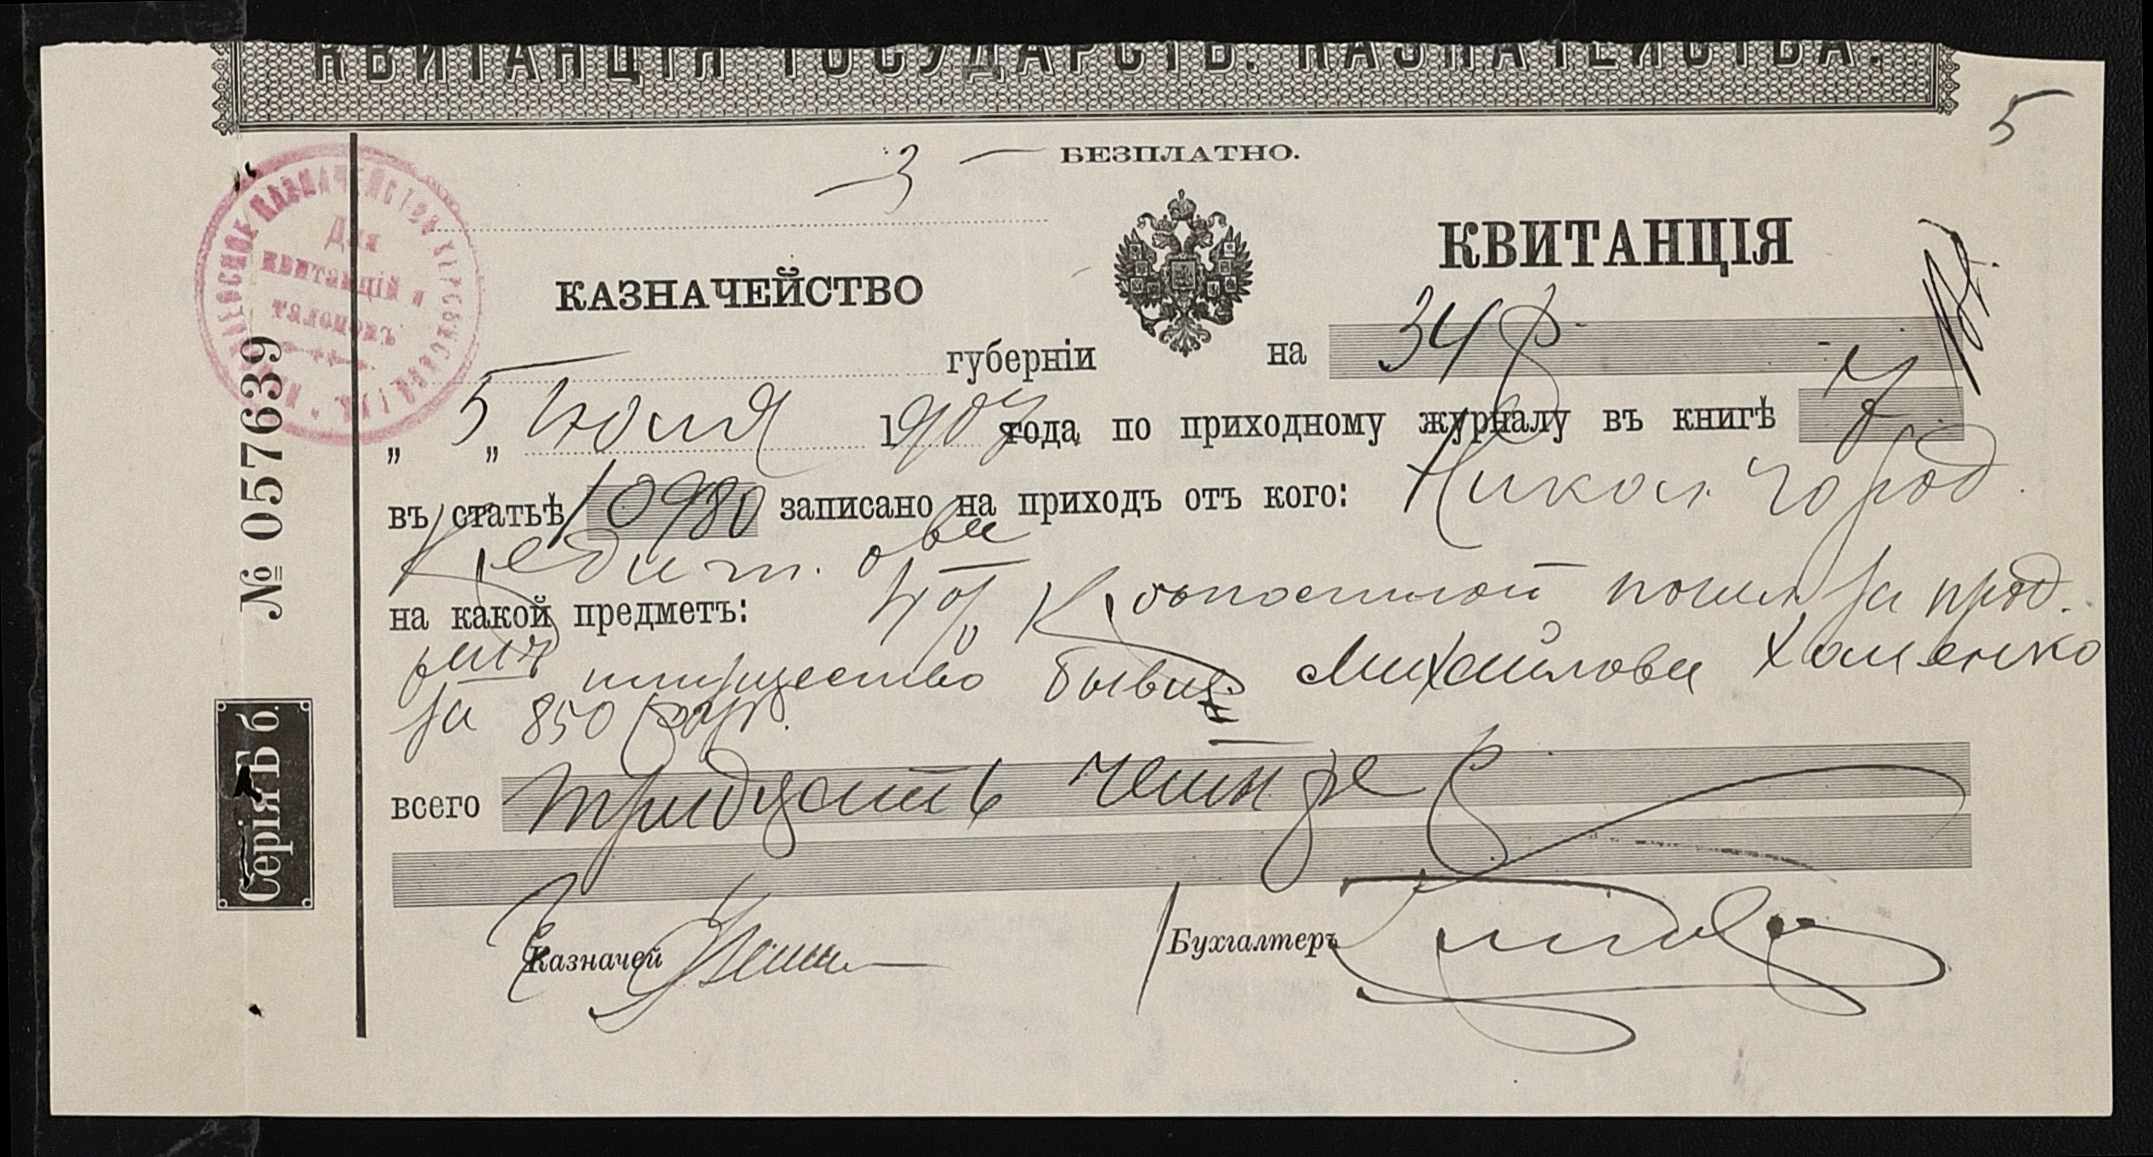 КВИТАНЦІЯ ГОСУДАРСТВ. КАЗНАЧЕЙСТВА.
5
3 — БЕЗПЛАТНО.
КАЗНАЧЕЙСТВО
КВИТАНЦІЯ
Для
квитанцій и
талоновъ
губерніи
на 34 р
„ 5 „ Июля 1907 года, по приходному журналу въ книгѣ
въ статьѣ 10980 записано на приходъ отъ кого: Никол. Город
Кредит. о-ва
на какой предметъ: 4% Крѣпостной пошл за прод.
имущество бывш Михайлова Хоменко
за 850 руб.
всего тридцать четыре р
Казначей
Бухгалтеръ
№ 057639
Серія Б б.